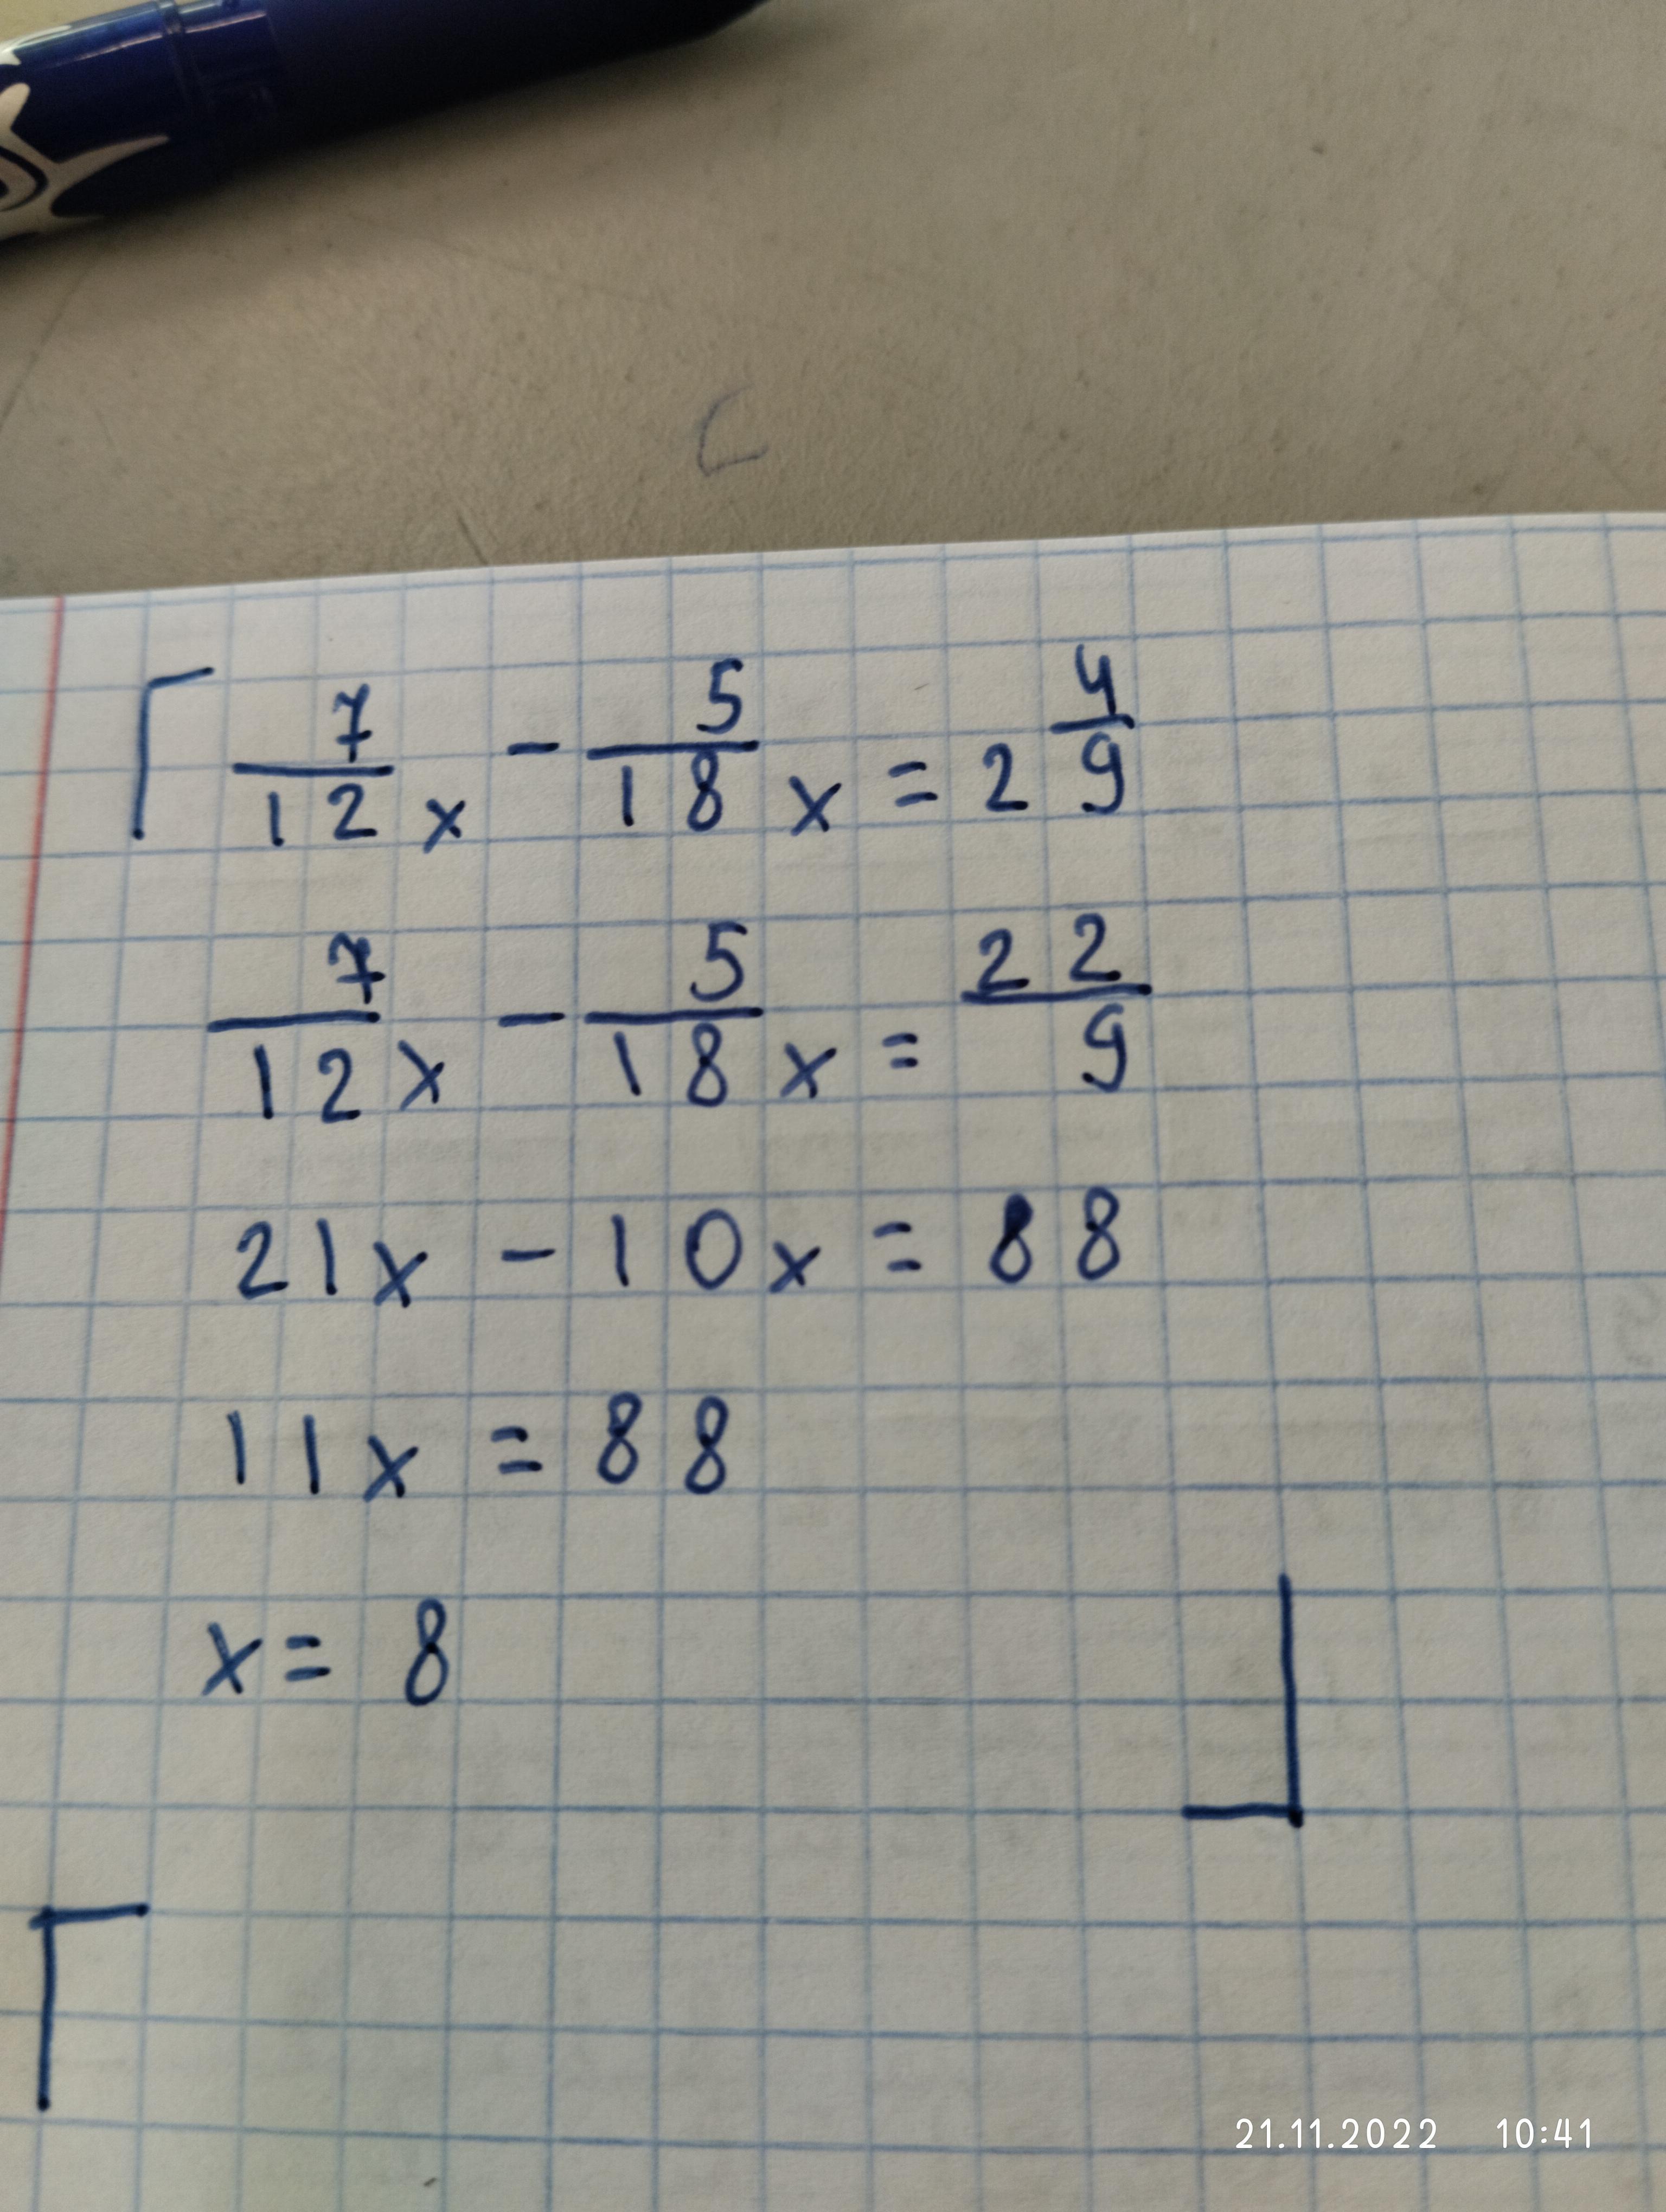 7/12 x - 5/18 x = 2 4/9
7/12 x - 5/18 x = 22/9
21x - 10x = 88
11x = 88
x = 8
21.11.2022 10:41